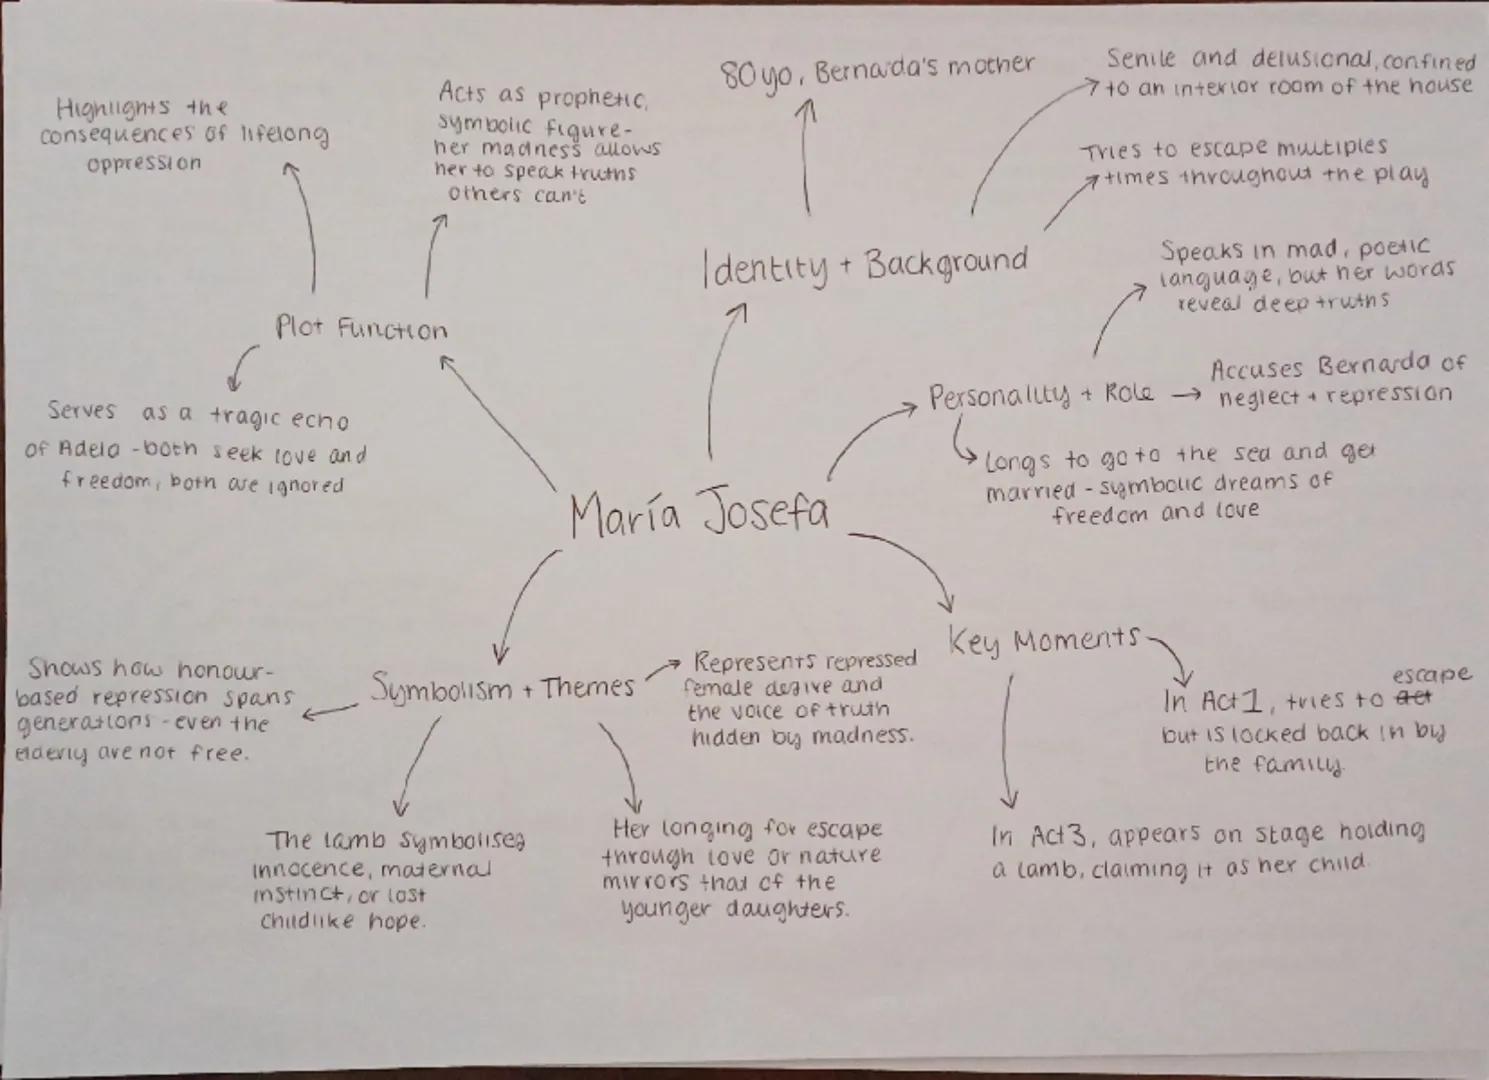 María Josefa
Identity + Background
80yo, Bernarda's mother
Senile and delusional, confined
to an interior room of the house
Tries to escape multiples
times throughout the play
Personality + Role
Speaks in mad, poetic
language, but her words
reveal deep truths
Accuses Bernarda of
neglect + repression
Longs to go to the sea and get
married - symbolic dreams of
freedom and love
Key Moments
In Act 1, tries to act escape
but is locked back in by
the family.
In Act 3, appears on stage holding
a lamb, claiming it as her child.
Symbolism + Themes
Represents repressed
female desire and
the voice of truth
hidden by madness.
Her longing for escape
through love or nature
mirrors that of the
younger daughters.
The lamb symbolises
innocence, maternal
instinct, or lost
childlike hope.
Shows how honour-
based repression spans
generations - even the
elderly are not free.
Plot Function
Serves as a tragic echo
of Adela - both seek love and
freedom, both are ignored
Highlights the
consequences of lifelong
oppression
Acts as prophetic,
symbolic figure-
her madness allows
her to speak truths
others can't